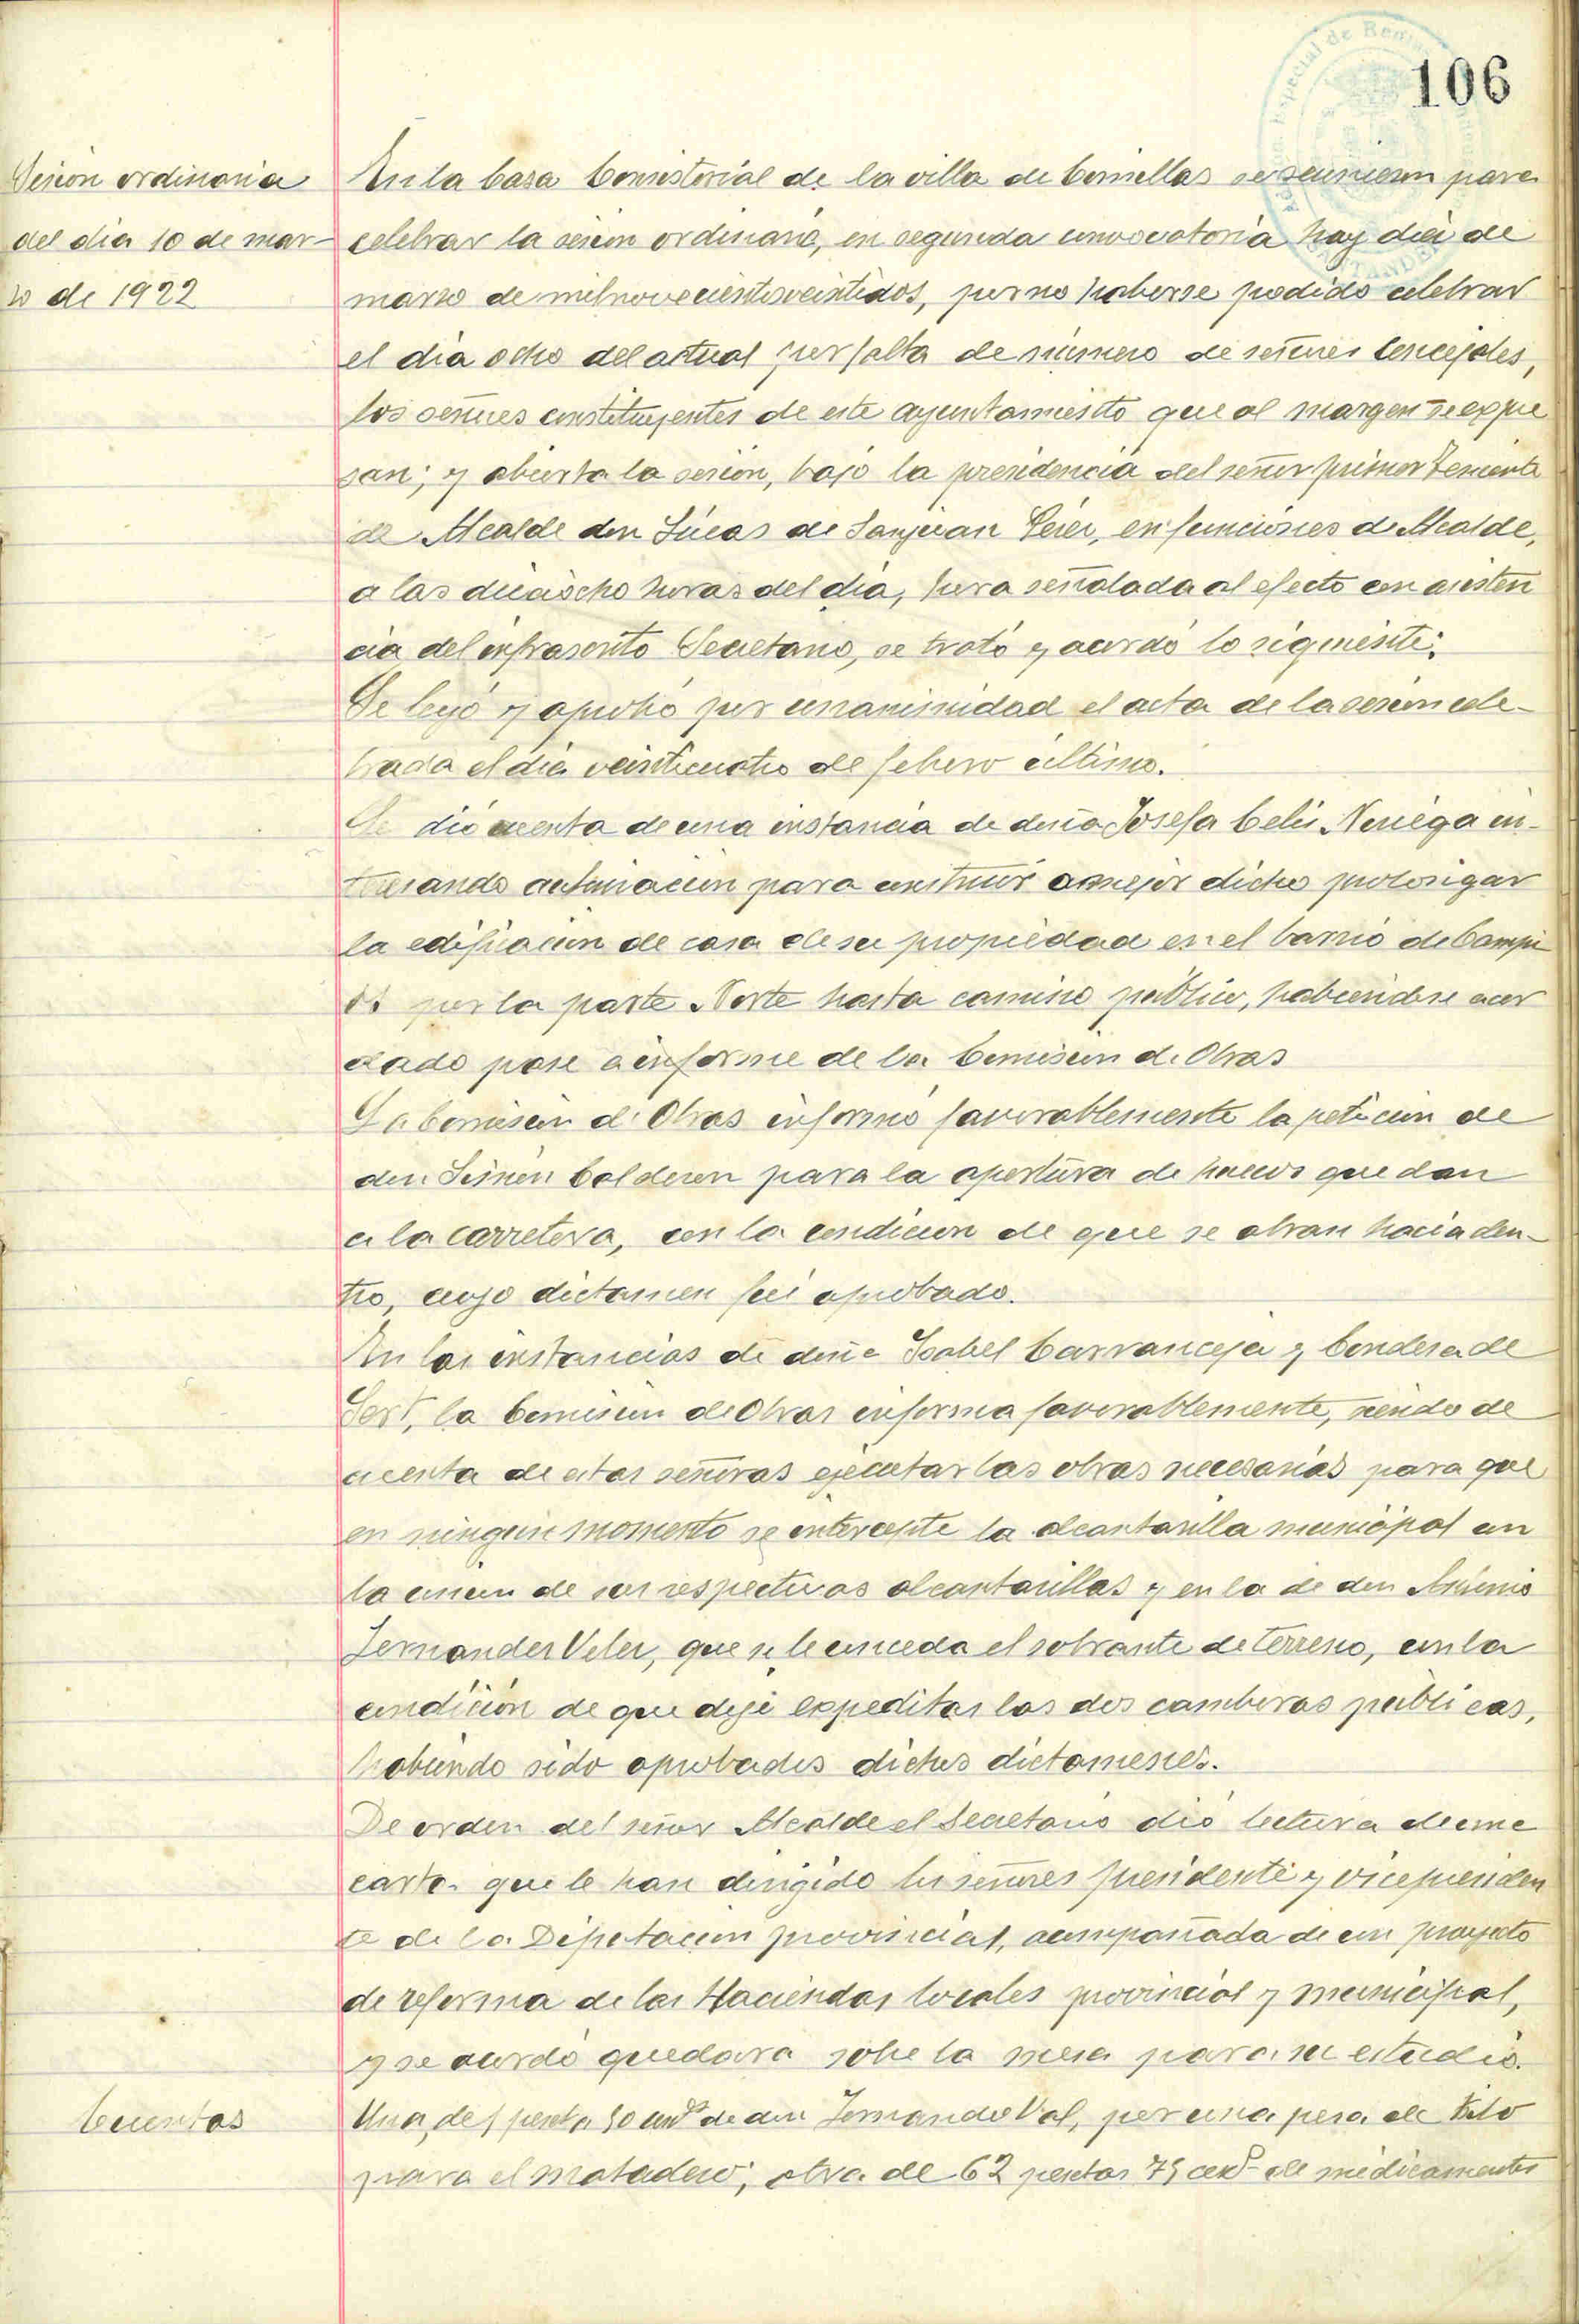 106
Sesión ordinaria
del día 10 de mar-
zo de 1922
En la Casa Consistorial de la villa de Comillas se reunieron para
celebrar la sesión ordinaria, en segunda convocatoria hoy diez de
marzo de mil novecientos veintidos, por no haberse podido celebrar
el día ocho del actual por falta de número de señores Concejales,
los señores constituyentes de este ayuntamiento que al margen se expre
san; y abierta la sesión, bajo la presidencia del señor primer Teniente
de Alcalde don Lúcas de Sanjuan Pérez, en funciones de Alcalde,
a las dieciocho horas del día, hora señalada al efecto con asisten
cia del infrascrito Secretario, se trató y acordó lo siguiente:
Se leyó y aprobó por unanimidad el acta de la sesión cele-
brada el día veinticuatro de febrero último.
Se dió cuenta de una instancia de doña Josefa Celis Noriega in-
teresando autorización para construir o mejor dicho prolongar
la edificación de casa de su propiedad en el barrio de Campi
por la parte Norte hasta camino público, habiendose acor
dado pase a informe de la Comisión de Obras
La Comisión de Obras informó favorablemente la petición de
don Simón Calderon para la apertura de huecos que dan
a la carretera, con la condición de que se abran hacia den-
tro, cuyo dictamen fué aprobado.
En las instancias de doña Isabel Carranceja y Condesa de
Sert, la Comisión de Obras informa favorablemente, siendo de
cuenta de estas señoras ejecutar las obras necesarias para que
en ningun momento se intercepte la alcantarilla municipal con
la unión de sus respectivas alcantarillas y en la de don Antonio
Fernandez Velez, que se le conceda el sobrante de terreno, con la
condición de que deje expeditas las dos camberas públicas,
habiendo sido aprobados dichos dictamenes.
De orden del señor Alcalde el Secretario dió lectura de una
carta que le han dirigido los señores presidente y vicepresiden
te de la Diputación provincial, acompañada de un proyecto
de reforma de las Haciendas locales provincial y municipal,
y se acordó quedara sobre la mesa para su estudio.
Cuentas
Una, de peseta 50 cent de don Fernando Val, por una pesa de kilo
para el matadero; otra de 62 pesetas 75 cent de medicamentos